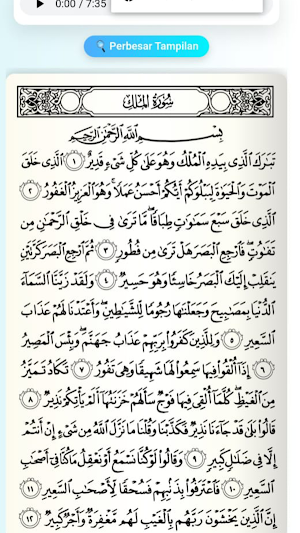 0:00 / 7:35
🔍 Perbesar Tampilan
سُورَةُ الْمُلْكِ
بِسْمِ اللَّهِ الرَّحْمَٰنِ الرَّحِيمِ
تَبَٰرَكَ الَّذِي بِيَدِهِ الْمُلْكُ وَهُوَ عَلَىٰ كُلِّ شَيْءٍ قَدِيرٌ ١ الَّذِي خَلَقَ
الْمَوْتَ وَالْحَيَوٰةَ لِيَبْلُوَكُمْ أَيُّكُمْ أَحْسَنُ عَمَلًا وَهُوَ الْعَزِيزُ الْغَفُورُ ٢
الَّذِي خَلَقَ سَبْعَ سَمَٰوَٰتٍ طِبَاقًا مَّا تَرَىٰ فِي خَلْقِ الرَّحْمَٰنِ مِن
تَفَٰوُتٍ فَارْجِعِ الْبَصَرَ هَلْ تَرَىٰ مِن فُطُورٍ ٣ ثُمَّ ارْجِعِ الْبَصَرَ كَرَّتَيْنِ
يَنقَلِبْ إِلَيْكَ الْبَصَرُ خَاسِئًا وَهُوَ حَسِيرٌ ٤ وَلَقَدْ زَيَّنَّا السَّمَاءَ
الدُّنْيَا بِمَصَٰبِيحَ وَجَعَلْنَٰهَا رُجُومًا لِّلشَّيَٰطِينِ وَأَعْتَدْنَا لَهُمْ عَذَابَ
السَّعِيرِ ٥ وَلِلَّذِينَ كَفَرُوا بِرَبِّهِمْ عَذَابُ جَهَنَّمَ وَبِئْسَ الْمَصِيرُ
٦ إِذَا أُلْقُوا فِيهَا سَمِعُوا لَهَا شَهِيقًا وَهِيَ تَفُورُ ٧ تَكَادُ تَمَيَّزُ
مِنَ الْغَيْظِ كُلَّمَا أُلْقِيَ فِيهَا فَوْجٌ سَأَلَهُمْ خَزَنَتُهَا أَلَمْ يَأْتِكُمْ نَذِيرٌ ٨
قَالُوا بَلَىٰ قَدْ جَاءَنَا نَذِيرٌ فَكَذَّبْنَا وَقُلْنَا مَا نَزَّلَ اللَّهُ مِن شَيْءٍ إِنْ أَنتُمْ
إِلَّا فِي ضَلَٰلٍ كَبِيرٍ ٩ وَقَالُوا لَوْ كُنَّا نَسْمَعُ أَوْ نَعْقِلُ مَا كُنَّا فِي أَصْحَٰبِ
السَّعِيرِ ١٠ فَاعْتَرَفُوا بِذَنبِهِمْ فَسُحْقًا لِّأَصْحَٰبِ السَّعِيرِ ١١
إِنَّ الَّذِينَ يَخْشَوْنَ رَبَّهُم بِالْغَيْبِ لَهُم مَّغْفِرَةٌ وَأَجْرٌ كَبِيرٌ ١٢